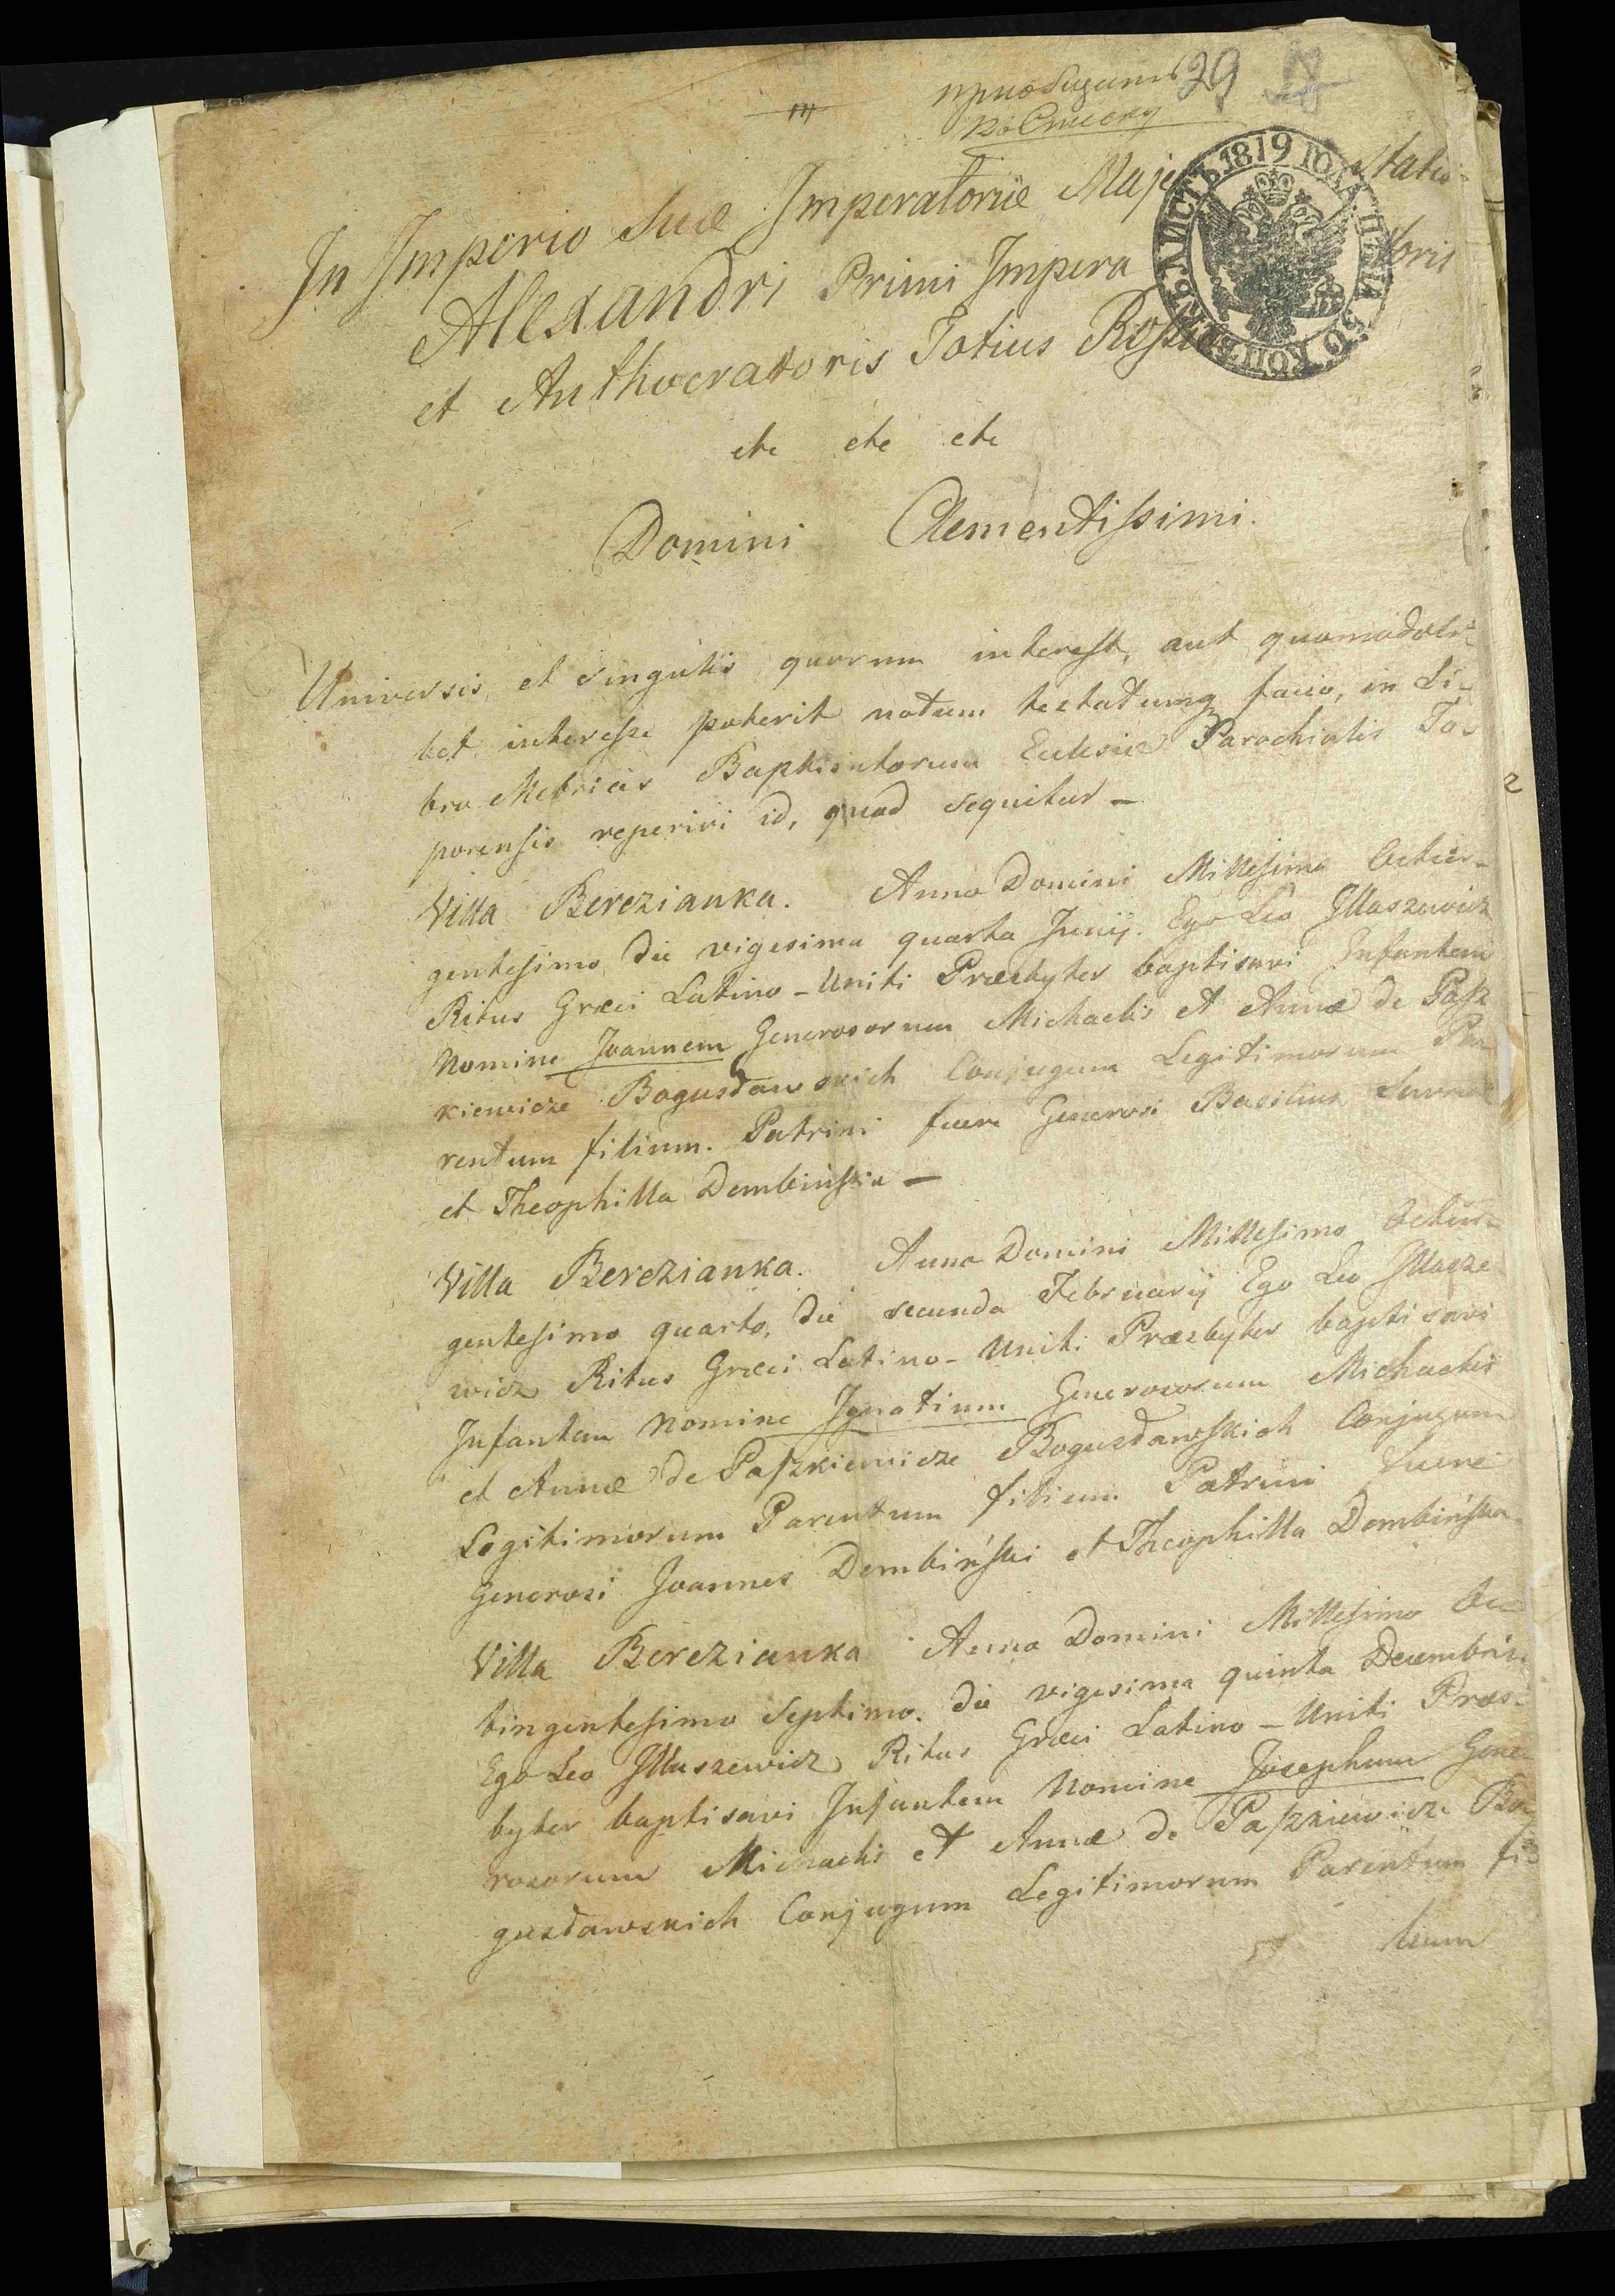 29
къ
In Imperio Suæ Imperatoriæ Majestatis
Alexandri Primi Imperatoris
et Authocratoris Totius Rossiæ
etc etc etc
Domini Clementissimi.
ЛИСТЪ 1819 ГОДА
Universis et singulis quorum interest, aut quomodoli-
bet interesse poterit notum testatumq facio, in Li-
bro Metricis Baptisatorum Eclesiæ Parochialis To-
porensis reperiri id, quod sequitur —
Villa Berezianka. Anno Domini Millesimo Octin-
gentesimo, die vigesima quarta Junij. Ego Leo Illaszewicz
Ritus Græci Latino-Uniti Præsbyter baptisavi Infantem
Nomine Joannem Generosorum Michaelis et Annæ de Pasz
kiewicze Bogusławskich Conjugum Legitimorum Pa
rentum filium. Patrini fuere Generosi Basilius
et Theophilla Dembinska —
Villa Berezianka. Anno Domini Millesimo Octin-
gentesimo quarto, die secunda Februarij Ego Leo Illasze
wicz Ritus Græci Latino-Uniti Præsbyter baptisavi
Infantem Nomine Ignatium Generosorum Michaelis
et Annæ de Paszkiewicze Bogusławskich Conjugum
Legitimorum Parentum filium Patrini fuere
Generosi Joannes Dembiński et Theophilla Dembińska
Villa Berezianka Anno Domini Millesimo Oc
tingentesimo Septimo. die vigesima quinta Decembris.
Ego Leo Illaszewicz Ritus Græci Latino-Uniti Præs-
byter baptisavi Infantem Nomine Josephum Gene
rosorum Michaelis et Annæ de Paszkiewicze Bo
gusławskich Conjugum Legitimorum Parentum fi
lium
2